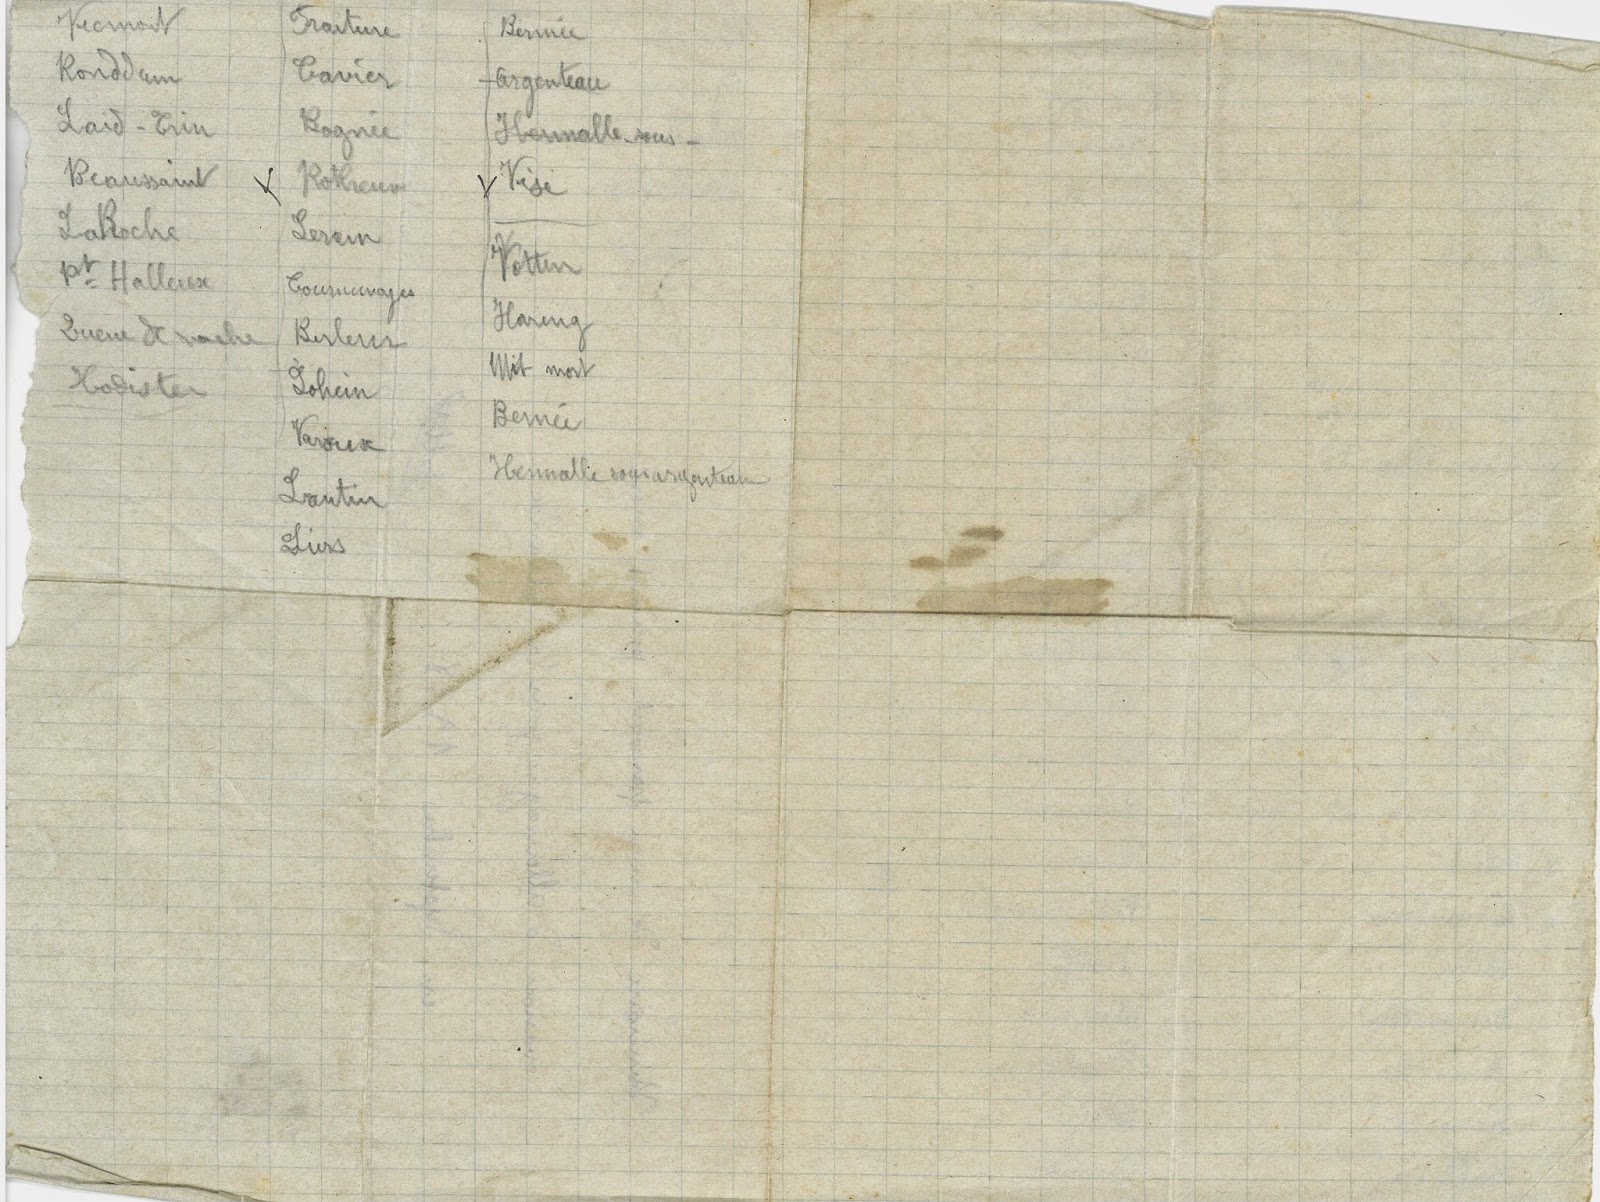 Vecmont
Ronddum
Laid-Trin
Beaussaint
LaRoche
Pt Halleux
Queue de vache
Hodister
Fraiture
Tavier
Rognée
Rotheux
Serain
Berleur
Lohein
Varoux
Lantin
Liers
Bernée
Argenteau
Hermalle-sous-
Visé
Vottem
Haring
Mit mort
Bernée
Hermalle sous argenteau